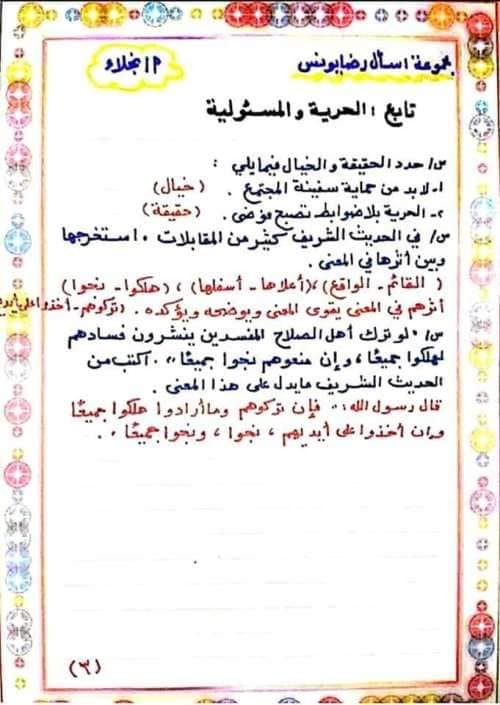 مجموعة اسأل رضا يونس
م/ نجلاء
تابع : الحرية والمسئولية
س/ حدد الحقيقة والخيال فيما يلي :
١- لابد من حماية سفينة المجتمع . (خيال)
٢- الحرية بلا ضوابط تصبح فوضى . (حقيقة)
س/ في الحديث الشريف كثير من المقابلات . استخرجها
وبين أثرها في المعنى .
( القائم - الواقع ) ، (أعلاها - أسفلها) ، (هلكوا - نجوا)
أثرهم في المعنى يقوى المعنى ويوضحه ويؤكده . (تركوهم - أخذوا على أيديهم
س/ "لو ترك أهل الصلاح المفسدين ينشرون فسادهم
لهلكوا جميعًا ، وإن منعوهم نجوا جميعًا" . اكتب من
الحديث الشريف ما يدل على هذا المعنى .
قال رسول الله : " فإن تركوهم وما أرادوا هلكوا جميعًا
وإن أخذوا على أيديهم ، نجوا ، ونجوا جميعًا " .
(٣)